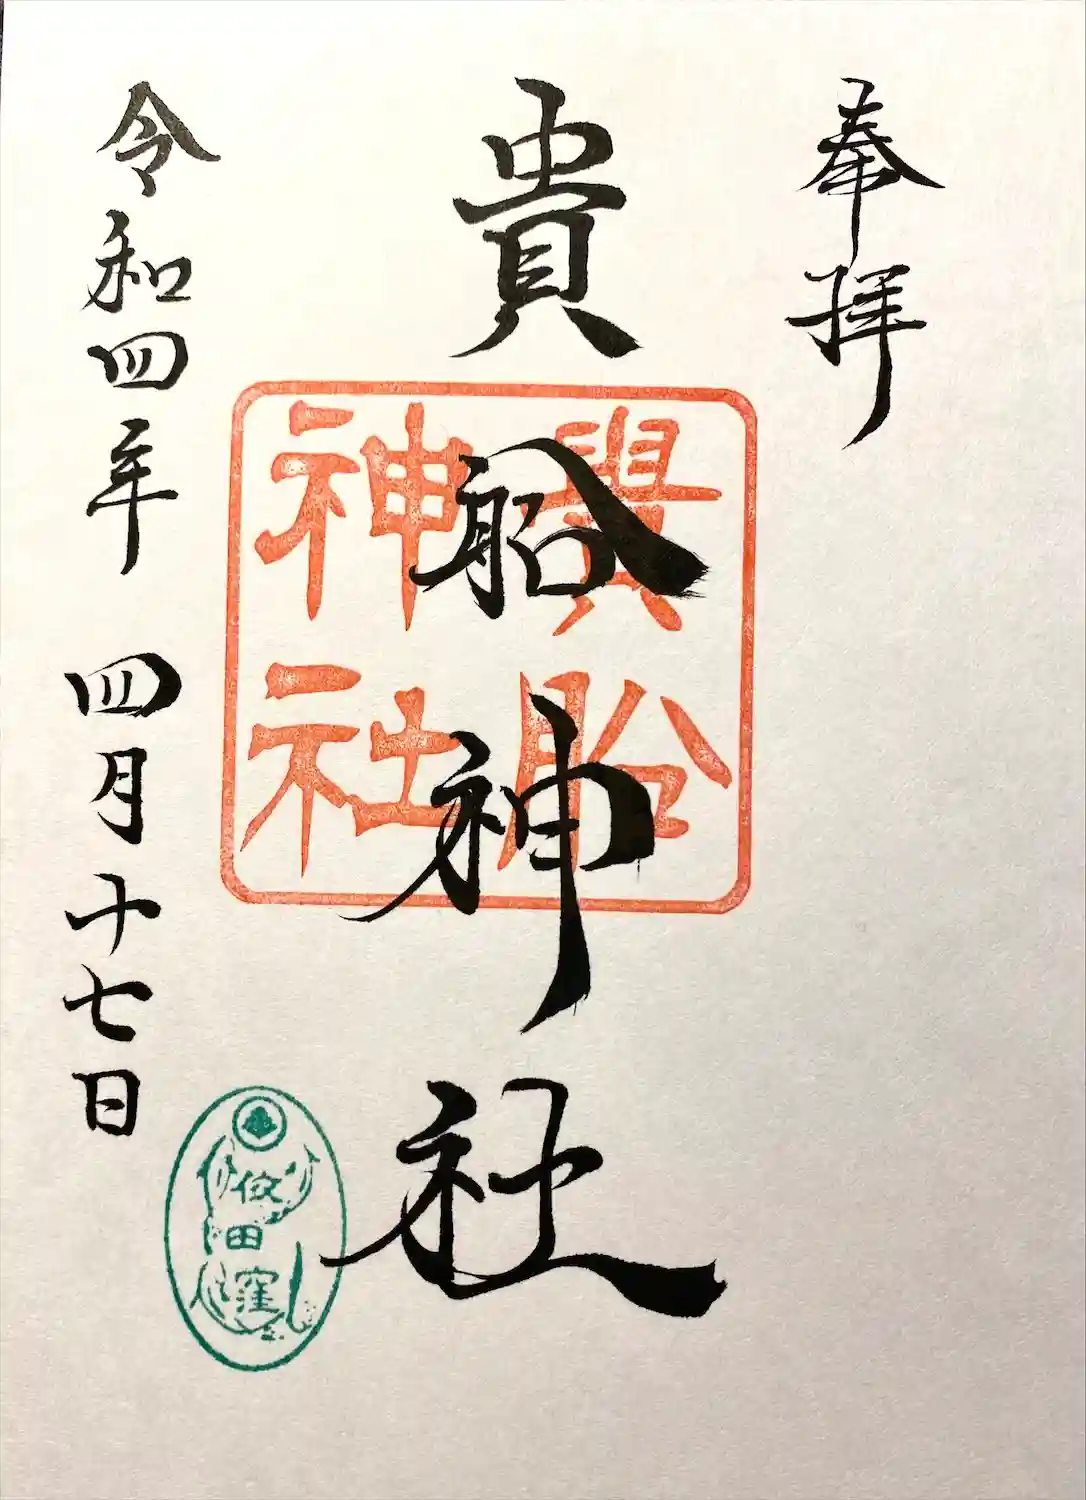 奉拝
貴船神社
貴船
神社
令和四年 四月十七日
田窪